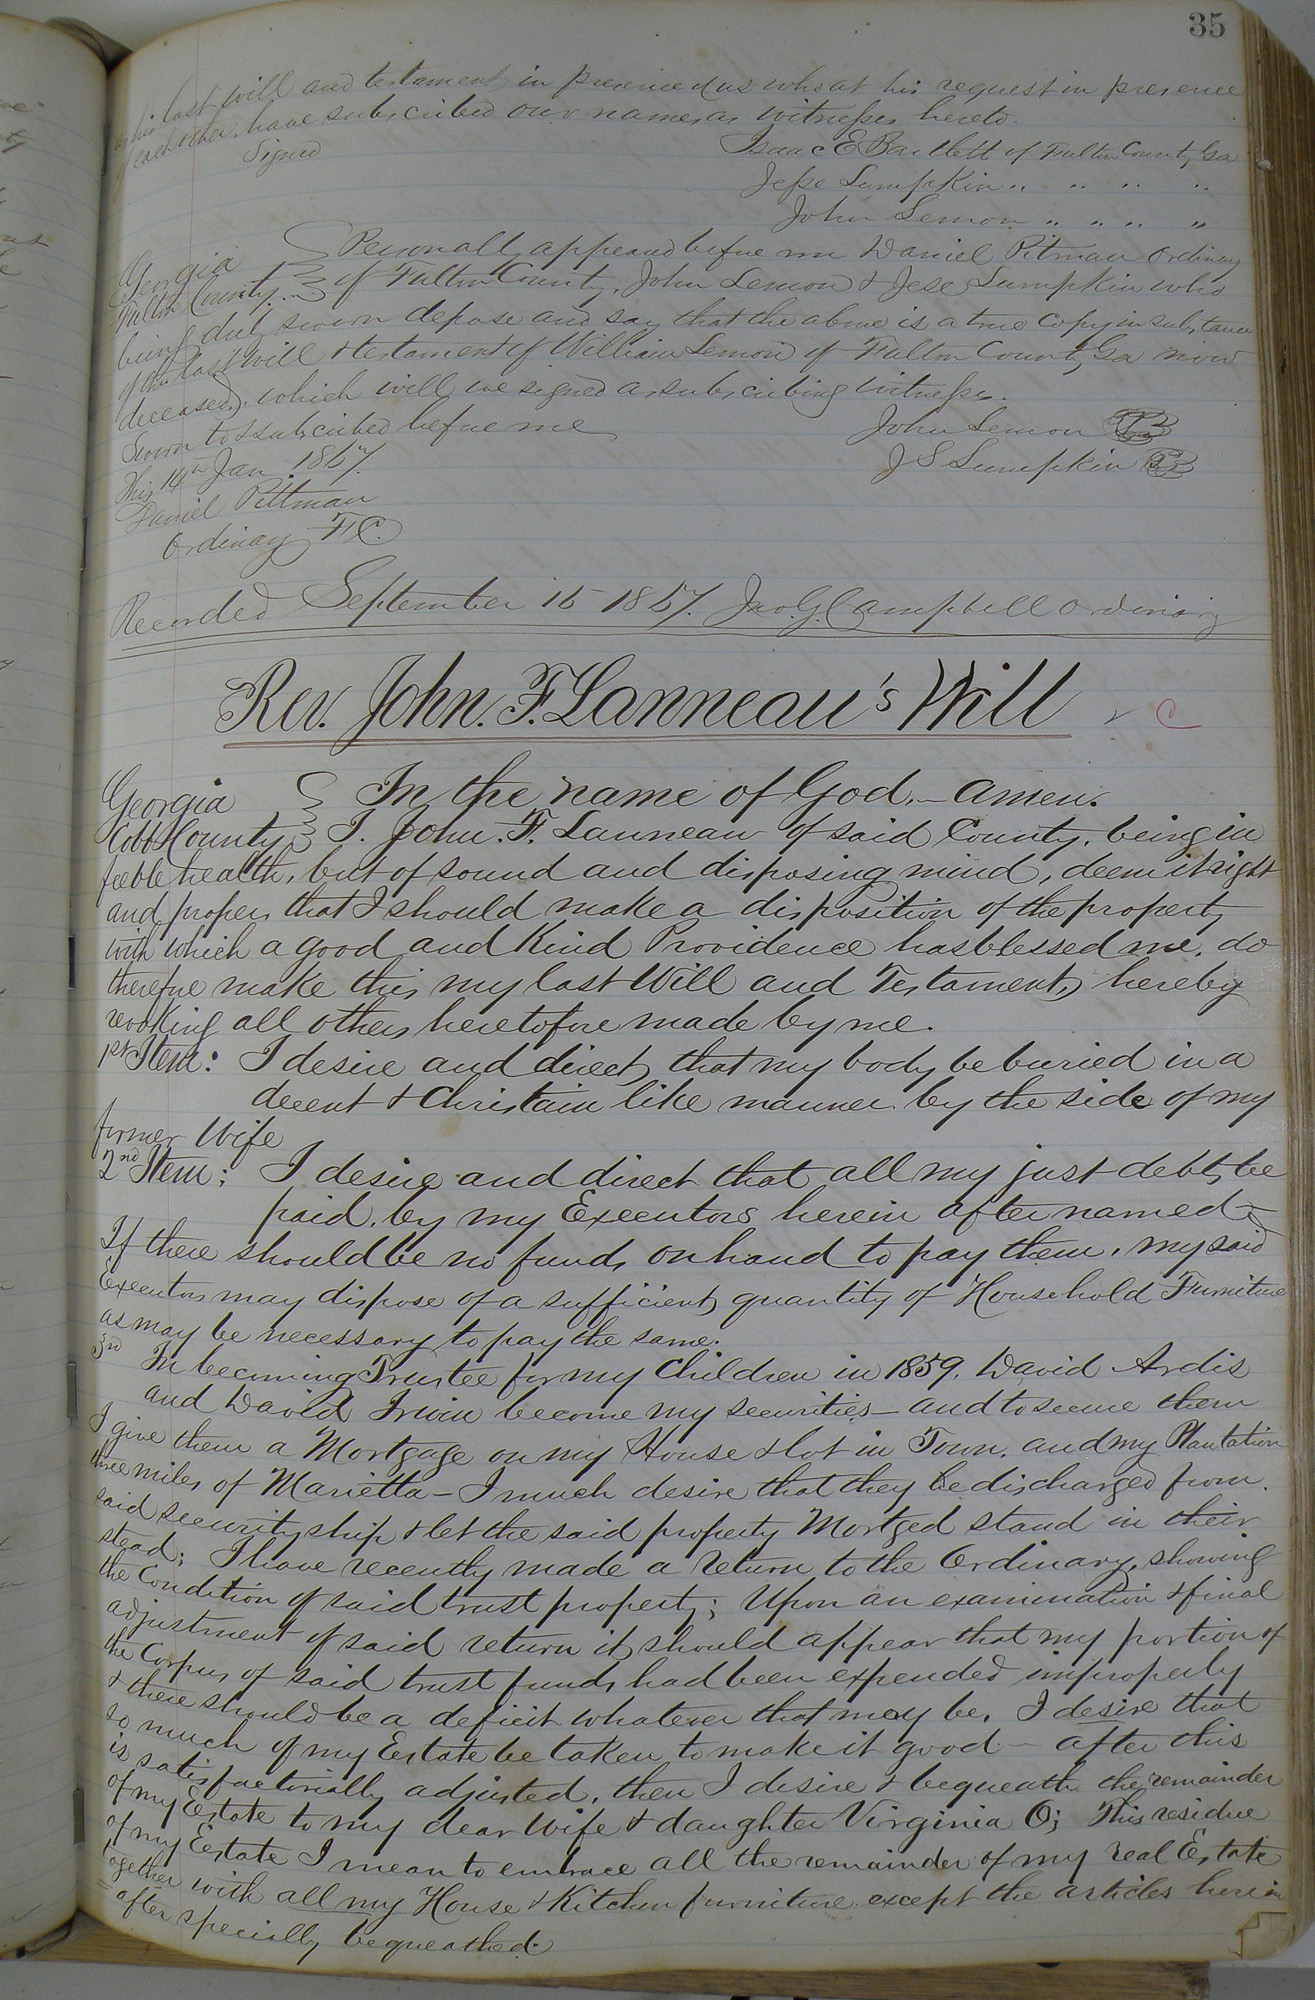 35
as his last will and testament in presence of us who at his request in presence
of each other, have subscribed our names as witnesses hereto.
Signed
Isaac E Bartlett of Fulton County, Ga
Jesse Lumpkin " " " "
John Lemon " " " "
Georgia
Fulton County
Personally appeared before me Daniel Pitman Ordinary
of Fulton County, John Lemon & Jese Lumpkin who
being duly sworn depose and say that the above is a true copy in substance
of the last Will & testament of William Lemon of Fulton County, Ga now
deceased, which will we signed as subscribing witnesses.
Sworn to & subscribed before me
John Lemon
This 14th Jan 1867.
J S Lumpkin
Daniel Pittman
Ordinary F. C.
Recorded September 16 1867. Jno. G. Campbell Ordinary
Rev. John. F. Lanneau's Will
C
Georgia
Cobb County
In the name of God, – amen.
I. John. F. Lanneau of said County, being in
feeble health, but of sound and disposing mind, deem it right
and proper, that I should make a disposition of the property
with which a good and Kind Providence has blessed me. do
therefore make this my last Will and Testament, hereby
revoking all others heretofore made by me.
1st Item: I desire and direct, that my body be buried in a
decent & Christain like manner by the side of my
former Wife
2nd Item: I desire and direct that all my just debts, be
paid, by my Executors herein after named –
If there should be no funds on hand to pay them, my said
Executors may dispose of a sufficient quantity of Household Furniture
as may be necessary to pay the same.
3rd In becoming Trustee for my Children in 1859. David Ardis
and David Irwin become my securities – and to secure them
I give them a Mortgage on my House & lot in Town, and my Plantation
three miles of Marietta – I much desire that they be discharged from
said security ship & let the said property Mortged stand in their
stead; I have recently made a return to the Ordinary, showing
the Condition of said trust property; Upon an examination & final
adjustment of said return it should appear that my portion of
the Corpus of said trust funds had been expended improperly
& there should be a deficit whatever that may be, I desire that
so much of my Estate be taken to make it good – after this
is satisfactorially adjusted, then I desire & bequeath the remainder
of my Estate to my dear Wife & daughter Virginia O; This residue
of my Estate I mean to embrace all the remainder of my real Estate
together with all my House & Kitchen furniture except the articles herein
after specially bequeathed.